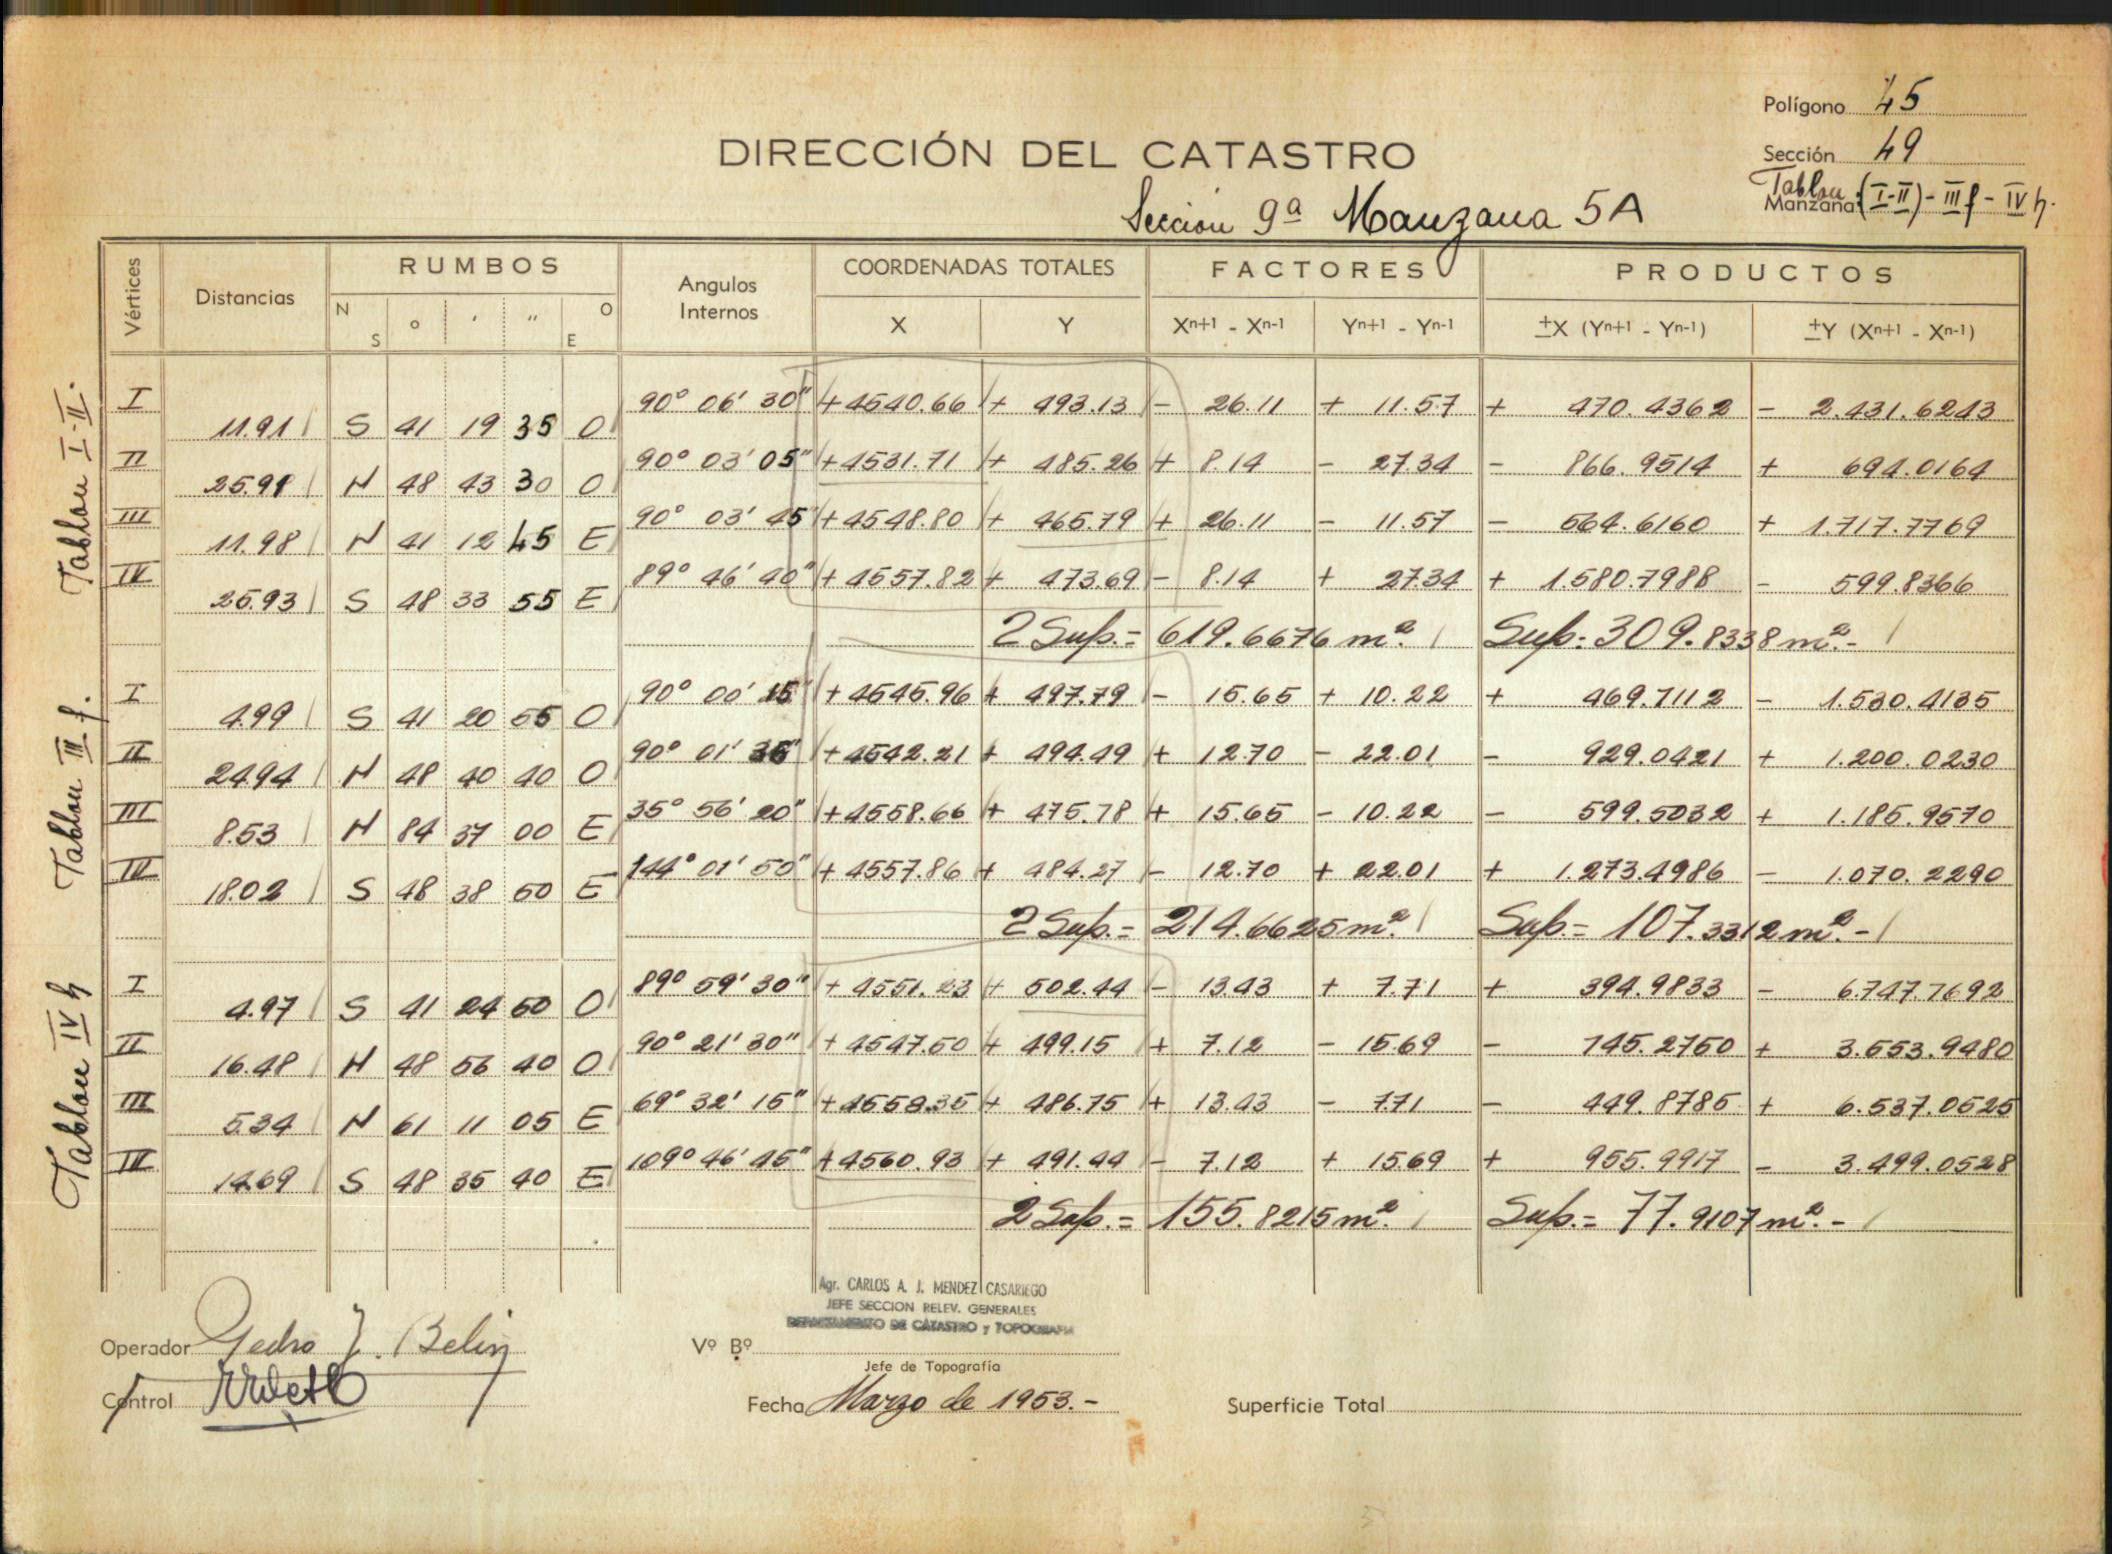 Polígono 45
DIRECCIÓN DEL CATASTRO
Sección 49
Tablou
Manzana: (I-II) - III f - IV h.
Sección 9ª Manzana 5A
Vértices Distancias RUMBOS Angulos Internos COORDENADAS TOTALES FACTORES PRODUCTOS
N S ° ' " O E X Y Xn+1 - Xn-1 Yn+1 - Yn-1 ±X (Yn+1 - Yn-1) ±Y (Xn+1 - Xn-1)
Tablou I-II.
I 90° 06' 30" + 4540.66 + 493.13 - 26.11 + 11.57 + 470.4362 - 2.431.6243
11.91 S 41 19 35 O
II 90° 03' 05" + 4531.71 + 485.26 + 8.14 - 27.34 - 866.9514 + 694.0164
25.91 N 48 43 30 O
III 90° 03' 45" + 4548.80 + 465.79 + 26.11 - 11.57 - 564.6160 + 1.717.7769
11.98 N 41 12 45 E
IV 89° 46' 40" + 4557.82 + 473.69 - 8.14 + 27.34 + 1.580.7988 - 599.8366
25.93 S 48 33 55 E
2 Sup.= 619.6676 m². Sup.: 309.8338 m².-
Tablou III f.
I 90° 00' 15" + 4545.96 + 497.79 - 15.65 + 10.22 + 469.7112 - 1.530.4135
4.99 S 41 20 55 O
II 90° 01' 35" + 4542.21 + 494.49 + 12.70 - 22.01 - 929.0421 + 1.200.0230
24.94 N 48 40 40 O
III 35° 56' 20" + 4558.66 + 475.78 + 15.65 - 10.22 - 599.5032 + 1.185.9570
8.53 N 84 37 00 E
IV 144° 01' 50" + 4557.86 + 484.27 - 12.70 + 22.01 + 1.273.4986 - 1.070.2290
18.02 S 48 38 50 E
2 Sup.= 214.6625 m². Sup.= 107.3312 m².-
Tablou IV h
I 89° 59' 30" + 4551.23 + 502.44 - 13.43 + 7.71 + 394.9833 - 6.747.7692
4.97 S 41 24 50 O
II 90° 21' 30" + 4547.50 + 499.15 + 7.12 - 15.69 - 745.2750 + 3.553.9480
16.48 N 48 56 40 O
III 69° 32' 15" + 4558.35 + 486.75 + 13.43 - 7.71 - 449.8785 + 6.537.0525
5.34 N 61 11 05 E
IV 109° 46' 45" + 4560.93 + 491.44 - 7.12 + 15.69 + 955.9917 - 3.499.0528
14.69 S 48 35 40 E
2 Sup.= 155.8215 m². Sup.= 77.9107 m².-
Agr. CARLOS A. J. MENDEZ CASARIEGO
JEFE SECCION RELEV. GENERALES
DEPARTAMENTO DE CATASTRO y TOPOGRAFIA
Operador Pedro J. Belin
Vº Bº
Jefe de Topografía
Control
Fecha Marzo de 1953.-
Superficie Total